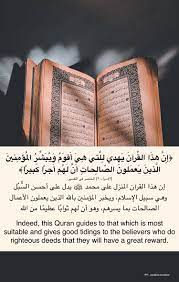 ﴿إِنَّ هَٰذَا الْقُرْآنَ يَهْدِي لِلَّتِي هِيَ أَقْوَمُ وَيُبَشِّرُ الْمُؤْمِنِينَ
الَّذِينَ يَعْمَلُونَ الصَّالِحَاتِ أَنَّ لَهُمْ أَجْرًا كَبِيرًا﴾
إن هذا القرآن المنزل على محمد ﷺ يدل على أحسن السُّبُل
وهي سبيل الإسلام، ويخبر المؤمنين بالله الذين يعملون الأعمال
الصالحات بما يسرهم، وهو أن لهم ثوابًا عظيمًا من الله
Indeed, this Quran guides to that which is most
suitable and gives good tidings to the believers who do
righteous deeds that they will have a great reward.